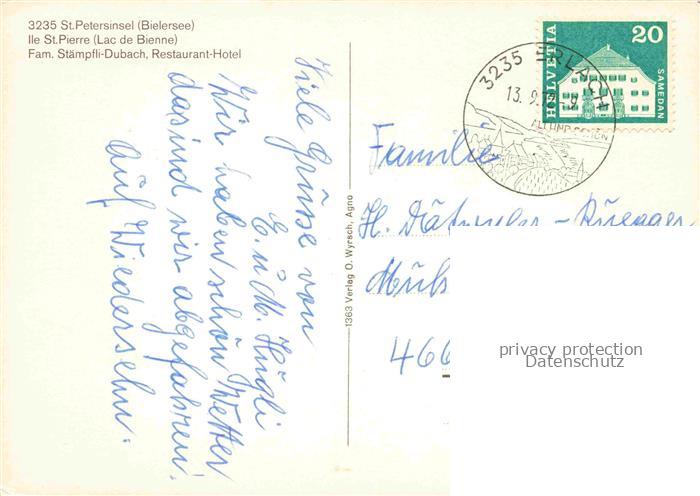 3235 St.Petersinsel (Bielersee)
Ile St.Pierre (Lac de Bienne)
Fam. Stämpfli-Dubach, Restaurant-Hotel
Viele Grüsse von
E. u. M. Hügli
Wir haben schön Wetter
da sind wir abgefahren!
Auf Wiedersehn.
1363 Verlag O. Wyrsch, Agno
HELVETIA
20
SAMEDAN
3235 ERLACH
13. 9.
ALT UND SCHÖN
Familie
H.
466
privacy protection
Datenschutz